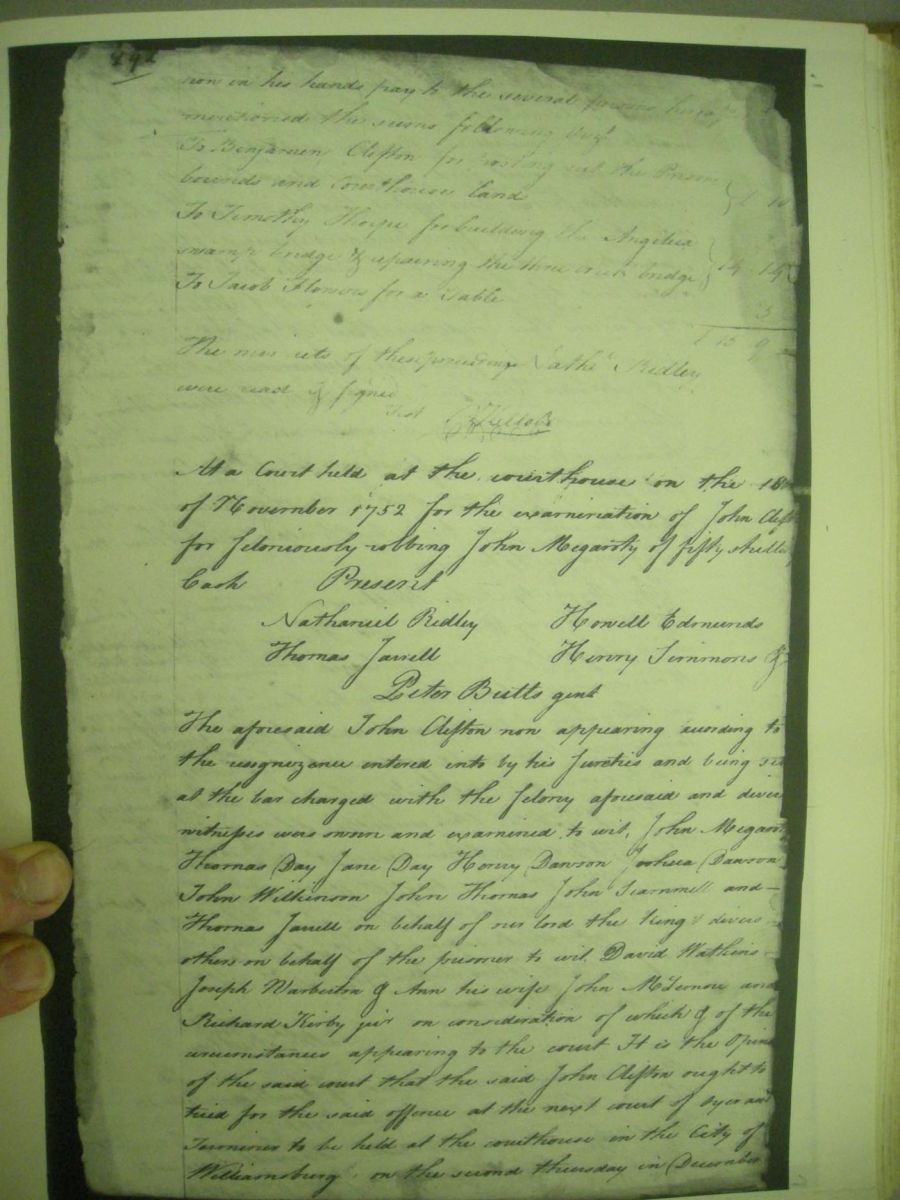 now in his hands pay to the several persons herein
mentioned the sums following viz
To Benjamin Clifton for the Prison
bounds and Courthouse Land
To Timothy Thorpe for building the Angelica
swamp bridge & repairing the three creek bridge 14
To Jacob Flowers for a Table 3
9
The minuets of these proceedings Nath Ridley
were read & signed
Test
At a Court held at the courthouse on the 18
of November 1752 for the examination of John Clift
for feloniously robbing John Megarity of fifty shilli
Cash Present
Nathaniel Ridley Howell Edmunds
Thomas Jarrell Henry Simmons &
Peter Butts gent
The aforesaid John Clifton now appearing according to
the recognizance entered into by his Sureties and being set
at the bar charged with the felony aforesaid and diver
witnesses were sworn and examined to wit, John Megari
Thomas Day Jane Day Henry Dawson Joshua Dawson
John Wilkinson John Thomas John Scammell and
Thomas Jarrell on behalf of our lord the King & divers
others on behalf of the prisoner to wit David Watkins
Joseph Warburton & Ann his wife John and
Richard Kirby jur on consideration of which & of the
circumstances appearing to the court It is the Opini
of the said court that the said John Clifton ought to
tried for the said offence at the next court of Oyer and
Terminer to be held at the courthouse in the City of
Williamsburg on the second thursday in December